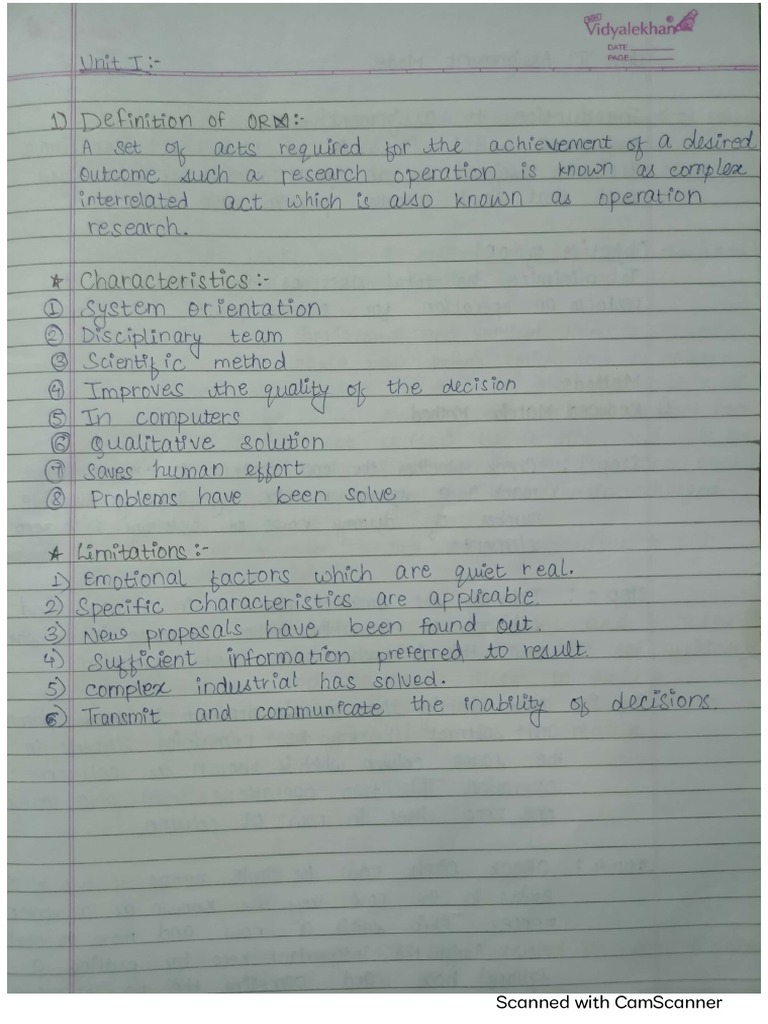 Vidyalekhan
DATE
PAGE
Unit I:-
1) Definition of OR:-
A set of acts required for the achievement of a desired
outcome such a research operation is known as complex
interrelated act which is also known as operation
research.
* Characteristics :-
① System orientation
② Disciplinary team
③ Scientific method
④ Improves the quality of the decision
⑤ In computers
⑥ Qualitative solution
⑦ Saves human effort
⑧ Problems have been solve
* Limitations :-
1) Emotional factors which are quiet real.
2) Specific characteristics are applicable
3) New proposals have been found out.
4) Sufficient information preferred to result.
5) complex industrial has solved.
6) Transmit and communicate the inability of decisions.
Scanned with CamScanner